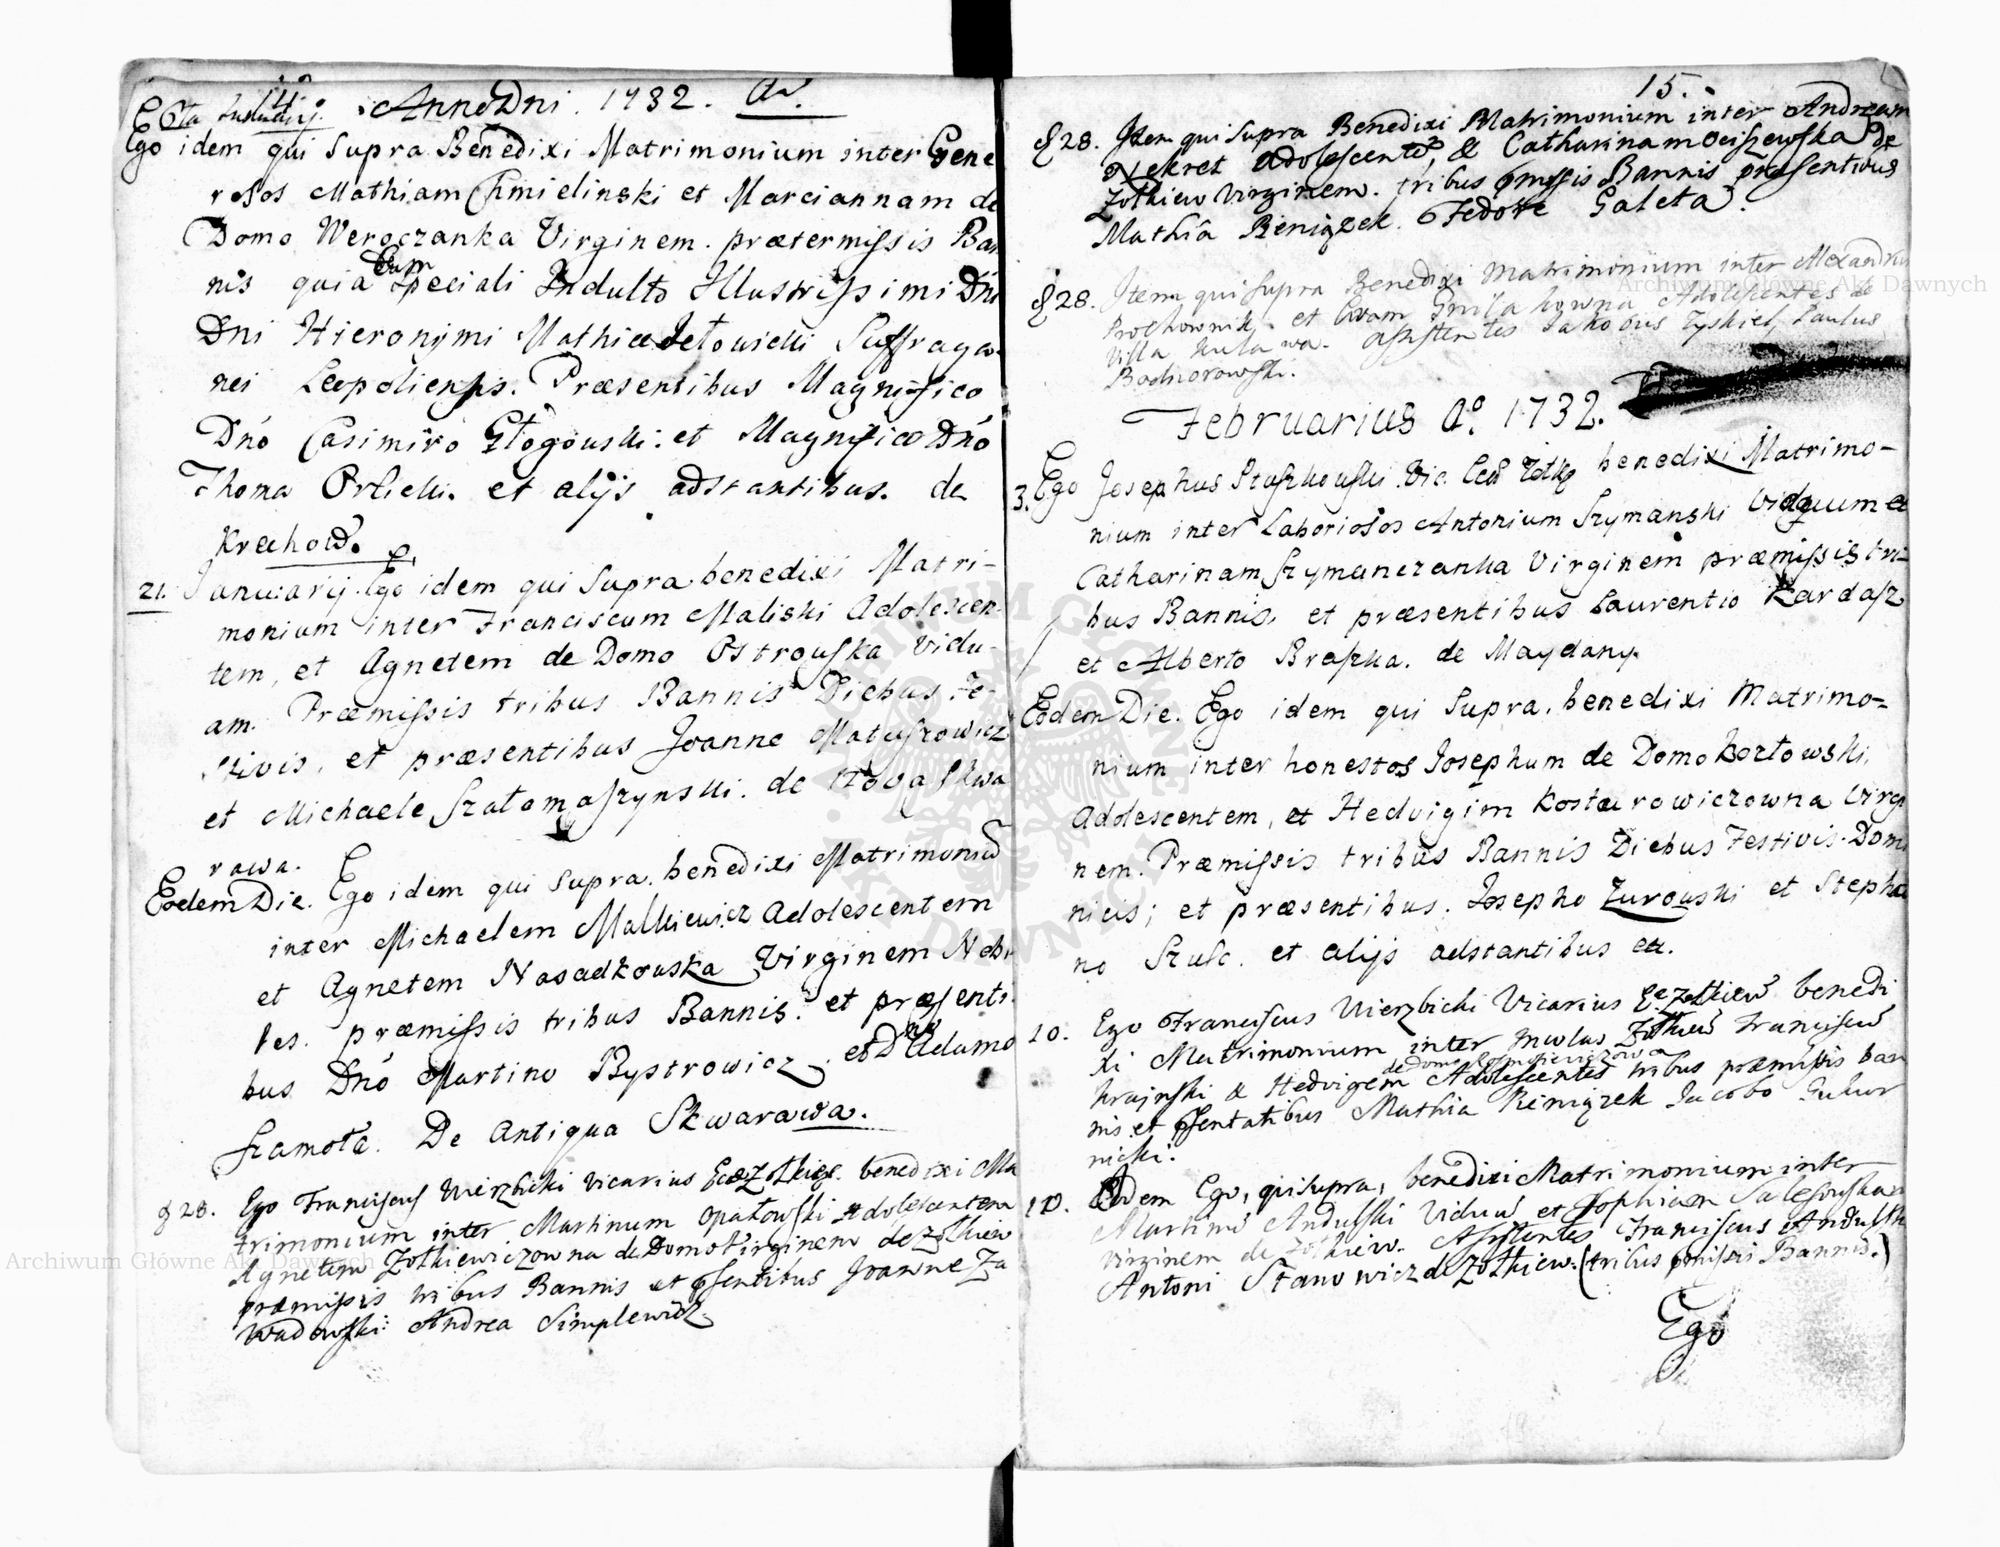 Anno Dni. 1732.
Ego idem qui supra Benedixi Matrimonium inter Gene
rosos Mathiam Chmielinski et Marciannam de
Domo Weroczanka Virginem. prætermissis Ban
nis quia Cum Speciali Indulto Illustrissimi Dni
Dni Hieronymi Mathiæ Jełowicki Suffraga-
nei Leopoliensis. Præsentibus Magnifico
Dńo Casimiro Głogouski. et Magnifico Dńo
Thoma Orlicki. et alijs adstantibus. de
Krechow.
21. Januarij. Ego idem qui supra benedixi Matri-
monium inter Franciscum Maliski Adolescen-
tem, et Agnetem de Domo Ostrouska Vidu-
am. Præmissis tribus Bannis Diebus Fe-
stivis, et præsentibus Joanne Matuszowicz
et Michaele Szatomaszynski. de Nova Skwa
rawa.
Eodem Die. Ego idem qui supra. benedixi Matrimoniu
inter Michaelem Malkiewicz Adolescentem
et Agnetem Nasadkouska Virginem Nobi
les. præmissis tribus Bannis. et præsenti
bus Dńo Martino Bystrowicz. et Dno Adamo
Szamota. De Antiqua Skwarawa.
28. Ego Franciscus Wierzbicki Vicarius Ecæ Zolkiew. benedixi Ma
trimonium inter Martinum Opatowski Adolescentem
Agnetem Zolkiewiczowna de Domo Virginem de Zolkiew
præmissis tribus Bannis et psentibus Joanne Za
wadowski: Andrea Simplewicz.
15.
28. Item qui supra Benedixi Matrimonium inter Andream
Nekret Adolescente, & Catharinam Ociszewska de
Zolkiew Virginem. tribus pmissis Bannis præsentibus
Mathia Reniązek. Fedore Galeta.
28. Item qui supra Benedixi Matrimonium inter Alexandru
Prochownik. et Adolescentes de
Villa assistentes Jakobus Zyskiel, Paulus
Badnorowski.
Februarius Ao. 1732.
3. Ego Josephus Staszkouski Vic. benedixi Matrimo-
nium inter Laboriosos Antonium Szymanski Viduum et
Catharinam Szymanczanka Virginem præmissis tri-
bus Bannis. et præsentibus Laurentio Kardasz
et Alberto Braszka. de Maydany.
Eodem Die. Ego idem qui supra. benedixi Matrimo-
nium inter honestos Josephum de Domo Kozłowski,
Adolescentem, et Hedvigim Kostarowiczowna Virgi
nem. Præmissis tribus Bannis Diebus Festivis. Domi
nicis; et præsentibus. Josepho Zurouski et Stepha
no Szulc. et alijs adstantibus etc.
10. Ego Franciscus Wierzbicki Vicarius Ecæ Zolkiew benedi
xi Matrimonium inter Incolas Zolkiew Francisców
Krajnski & Hedvigem Adolescentes tribus præmissis ban
nis et psentatibus Mathia Reniązek Jacobo Gukur
nicki.
10. Eodem Ego, qui supra, benedixi Matrimonium inter
Martinu Andulski Viduu et Sophiam Salesouskam
Virginem de Zolkiew. Assistentes Franciscus Andulski
Antoni Stanowicz de Zolkiew. (tribus pmissis Bannis.)
Ego
Archiwum Główne Akt Dawnych
Archiwum Główne Akt Dawnych
ARCHIWUM GŁÓWNE AKT DAWNYCH